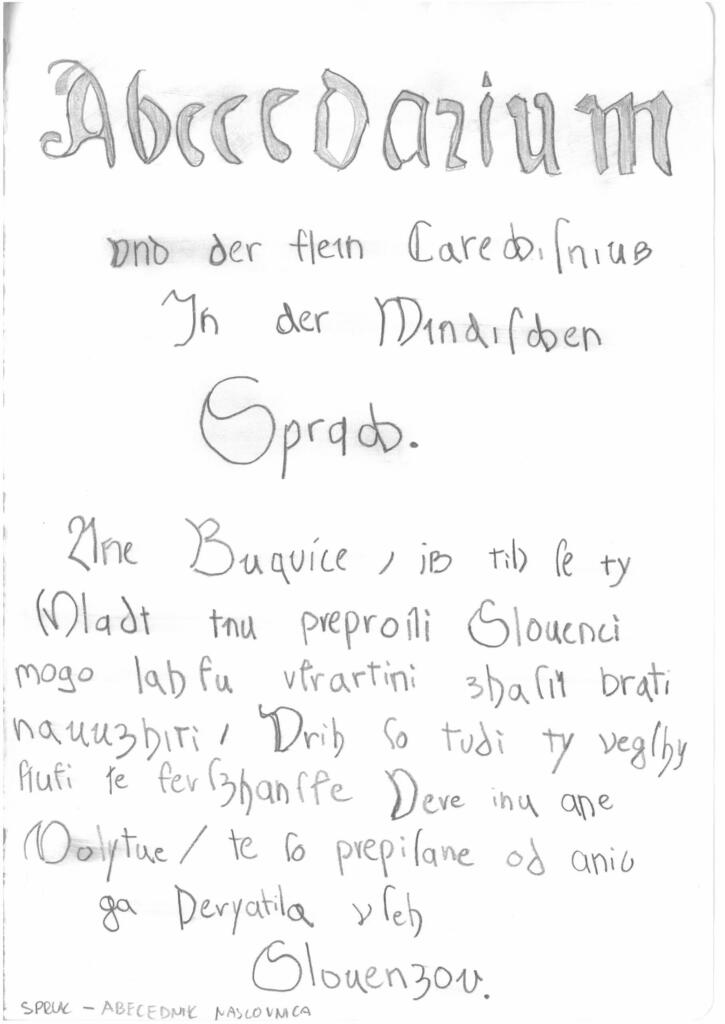 Abecedarium
vnd der klein Catechismus
In der Windischen
Sprach.
Ane Buquice, is tih se ty
Mladi inu preprosti Slouenci
mogo lahku vkratkim zhasu brati
nauuzhiti / Vtih so tudi ty vegshy
stuki te kerszhanske Vere inu ane
Molytue / te so prepisane od aniga
ga Peryatila vseh
Slouenzou.
SPRUK - ABECEDNIK NASLOVNICA